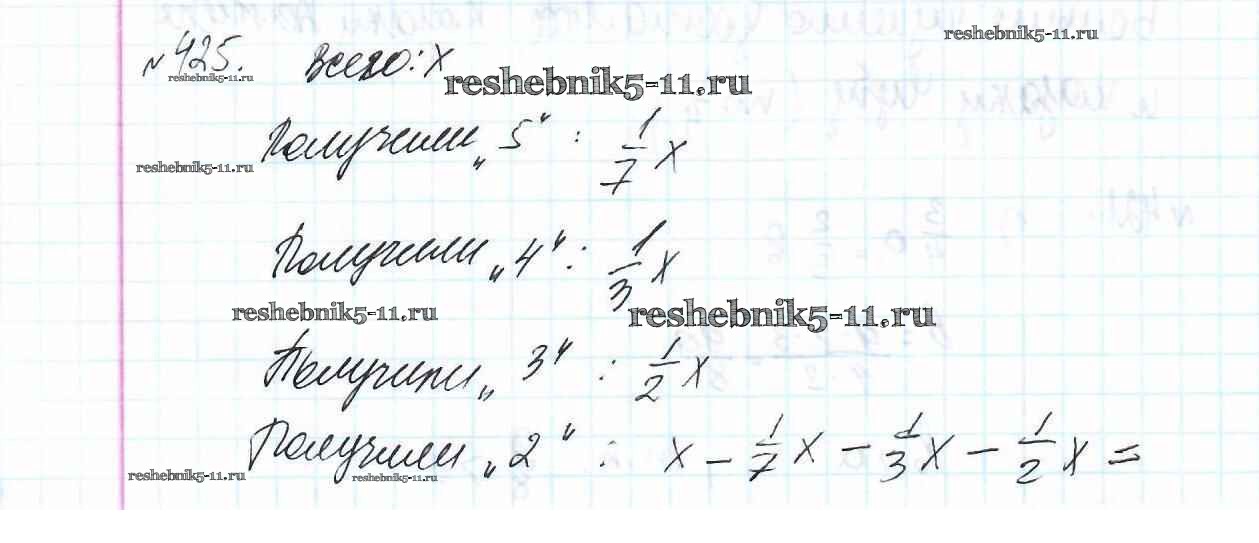 reshebnik5-11.ru
№425. Всего: x
reshebnik5-11.ru
reshebnik5-11.ru
Получили „5“ : 1/7 x
reshebnik5-11.ru
Получили „4“ : 1/3 x
reshebnik5-11.ru
reshebnik5-11.ru
Получили „3“ : 1/2 x
Получили „2“ : x – 1/7 x – 1/3 x – 1/2 x =
reshebnik5-11.ru
reshebnik5-11.ru